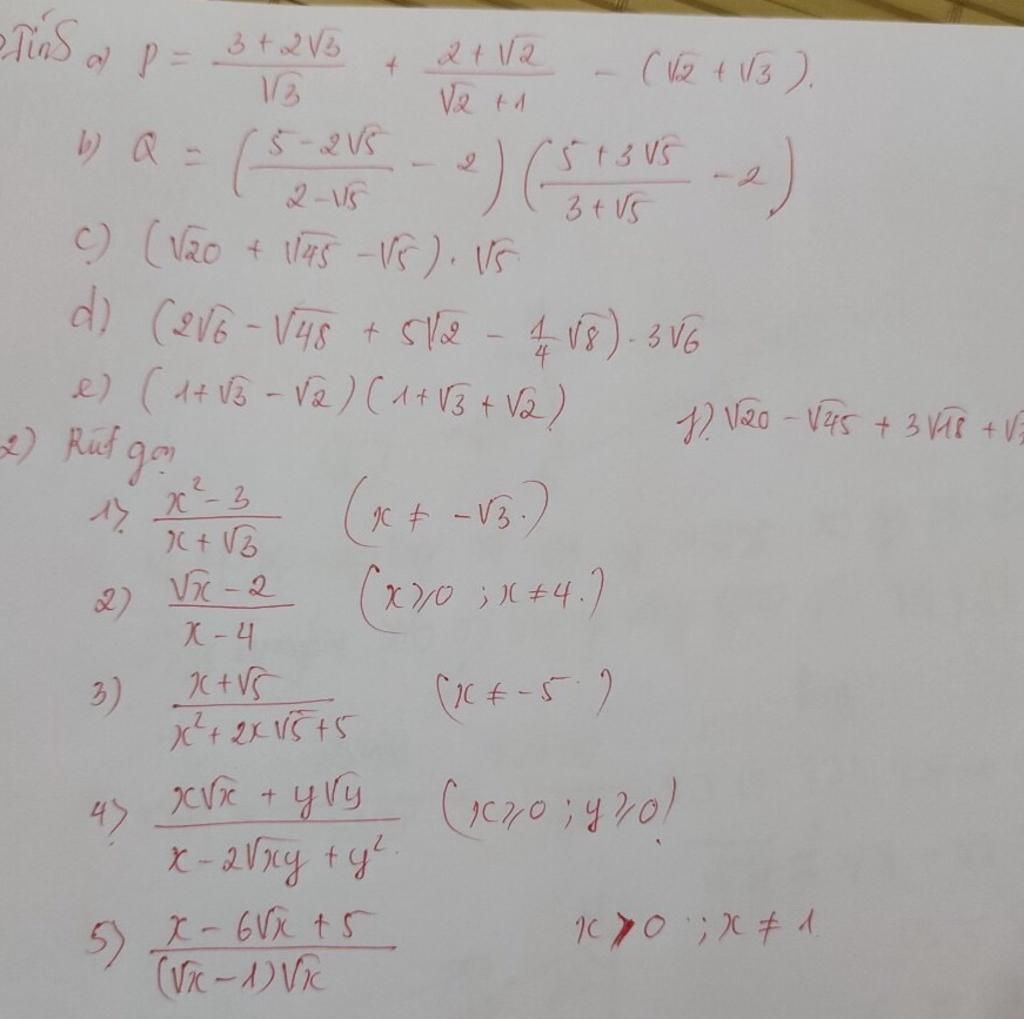 Tính a) P = (3 + 2√3)/√3 + (2 + √2)/(√2 + 1) - (√2 + √3).
b) Q = ((5 - 2√5)/(2 - √5) - 2)((5 + 3√5)/(3 + √5) - 2)
c) (√20 + √45 - √5) . √5
d) (2√6 - √48 + 5√2 - 1/4 √8) . 3√6
e) (1 + √3 - √2)(1 + √3 + √2)
f) √20 - √45 + 3√18 + √
2) Rút gọn
1) (x² - 3)/(x + √3) (x ≠ -√3.)
2) (√x - 2)/(x - 4) (x ⩾ 0 ; x ≠ 4.)
3) (x + √5)/(x² + 2x√5 + 5) (x ≠ -5)
4) (x√x + y√y)/(x - 2√xy + y²) (x ⩾ 0 ; y ⩾ 0)
5) (x - 6√x + 5)/((√x - 1)√x) x > 0 ; x ≠ 1.